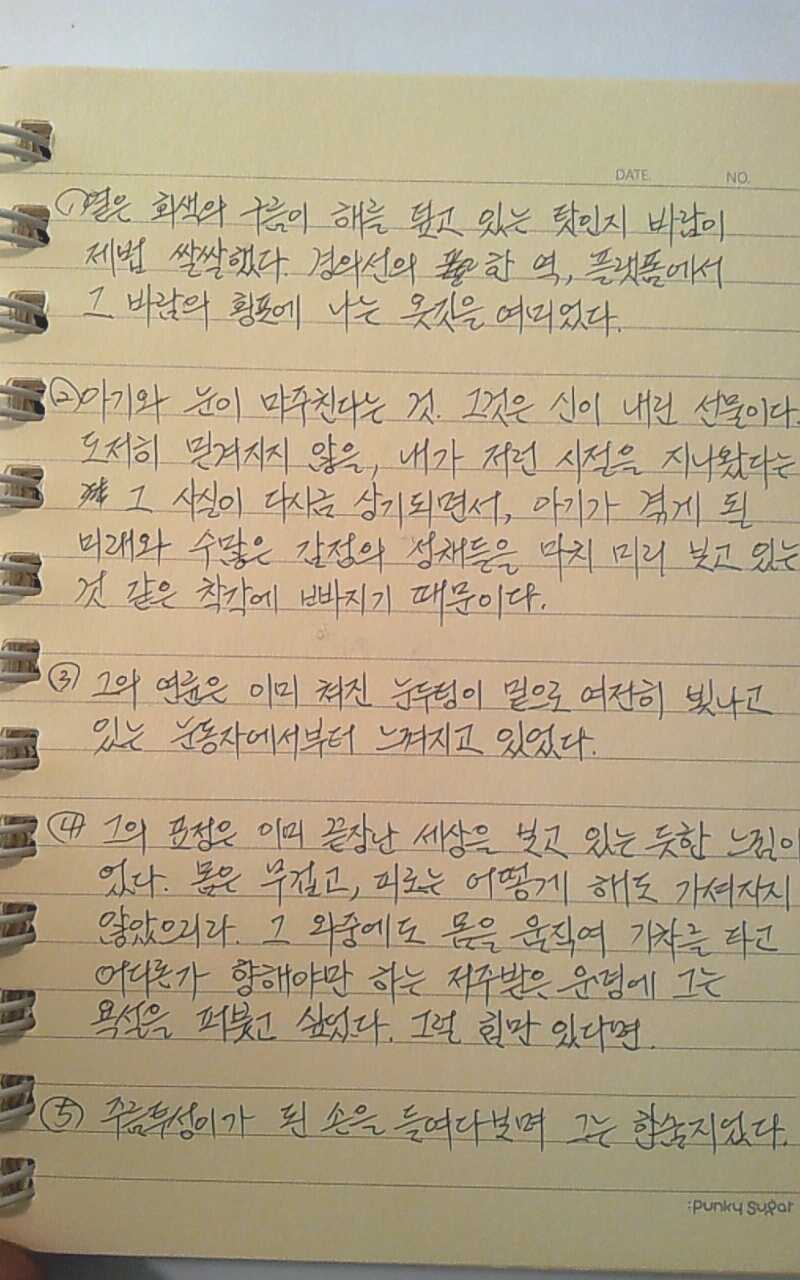 DATE. NO.
① 옅은 회색의 구름이 해를 덮고 있는 탓인지 바람이
제법 쌀쌀했다. 경의선의 한 역, 플랫폼에서
그 바람의 횡포에 나는 옷깃을 여미었다.
② 아기와 눈이 마주친다는 것. 그것은 신이 내린 선물이다.
도저히 믿겨지지 않을, 내가 저런 시절을 지나왔다는
그 사실이 다시금 상기되면서, 아기가 겪게 될
미래와 수많은 감정의 성채들을 마치 미리 보고 있는
것 같은 착각에 빠지기 때문이다.
③ 그의 연륜은 이미 쳐진 눈두덩이 밑으로 여전히 빛나고
있는 눈동자에서부터 느껴지고 있었다.
④ 그의 표정은 이미 끝장난 세상을 보고 있는 듯한 느낌이
었다. 몸은 무겁고, 피로는 어떻게 해도 가셔지지
않았으리라. 그 와중에도 몸을 움직여 기차를 타고
어디론가 향해야만 하는 저주받은 운명에 그는
욕설을 퍼붓고 싶었다. 그럴 힘만 있다면.
⑤ 주름투성이가 된 손을 들여다보며 그는 한숨지었다.
:Punky Sugar